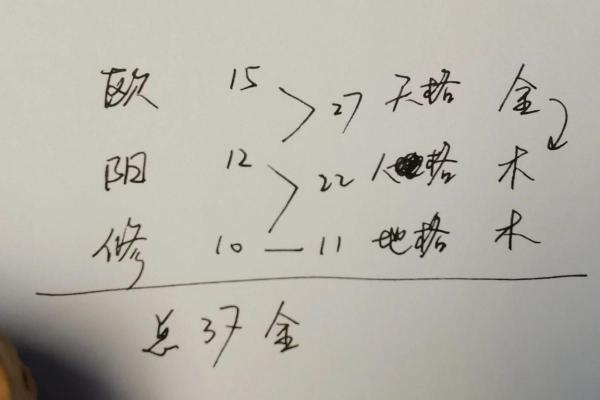 欧 15 > 27 天格 金
阳 12 > 22 人格 木
修 10 — 11 地格 木
总 37 金